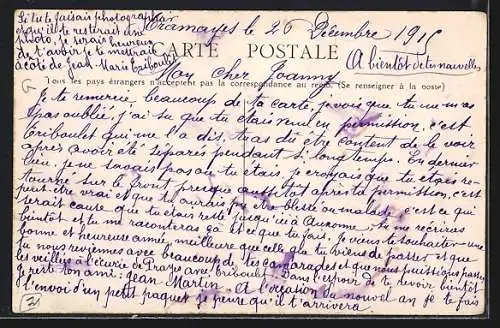 Si tu te faisais photographier
et qu'il te resterait une
photo, je serais heureux
de t'avoir je te mettrait
à côté de Jean-Marie Triboulet
Tramayes le 26 Décembre 1915
CARTE POSTALE
(A bientôt de tes nouvelles
Mon cher Joanny
Tous les pays étrangers n'acceptent pas la correspondance au recto. (Se renseigner à la poste)
Je te remercie beaucoup de ta carte, je vois que tu ne m'as
pas oublié, j'ai su que tu étais venu en permission, c'est
Triboulet qui me l'a dit, tu as dû être content de le voir
après avoir été séparés pendant si longtemps. En dernier
lieu, je ne savais pas où tu étais, je croyais que tu étais re-
tourné sur le front presque aussitôt après ta permission, c'est
peut-être vrai et que tu aurais pu être blessé ou malade, c'est ce qui
serait cause que tu étais resté jusqu'ici à Auxonne, tu me récriras
bientôt et tu me raconteras ça et ce que tu fais. Je viens te souhaiter une
bonne et heureuse année, meilleure que celle que tu viens de passer et que
tu nous reviennes avec beaucoup de tes camarades et que nous puissions passer
les veillées à l'écurie de Prayes avec Triboulet. Dans l'espoir de te revoir bientôt
je reste ton ami. Jean Martin A l'occasion du nouvel an je te fais
l'envoi d'un petit paquet je pense qu'il t'arrivera.